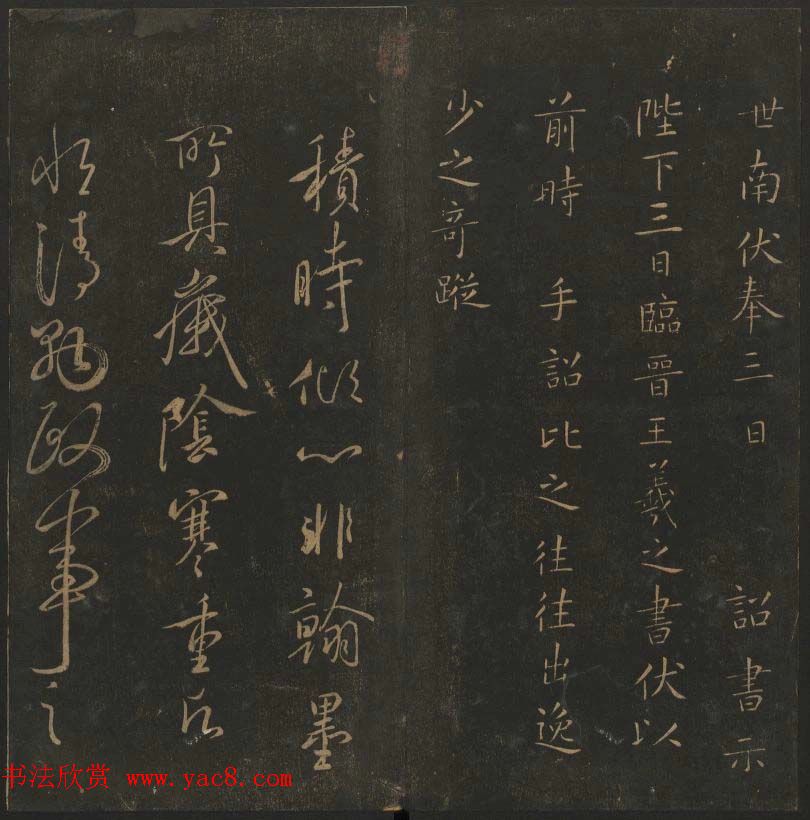 世南伏奉三日 詔書示
陛下三日臨晉王羲之書伏以
前時 手詔比之往往出逸
少之奇蹤
積時傾心非翰墨
所具歲陰寒重
清 政事之
书法欣赏 www.yac8.com